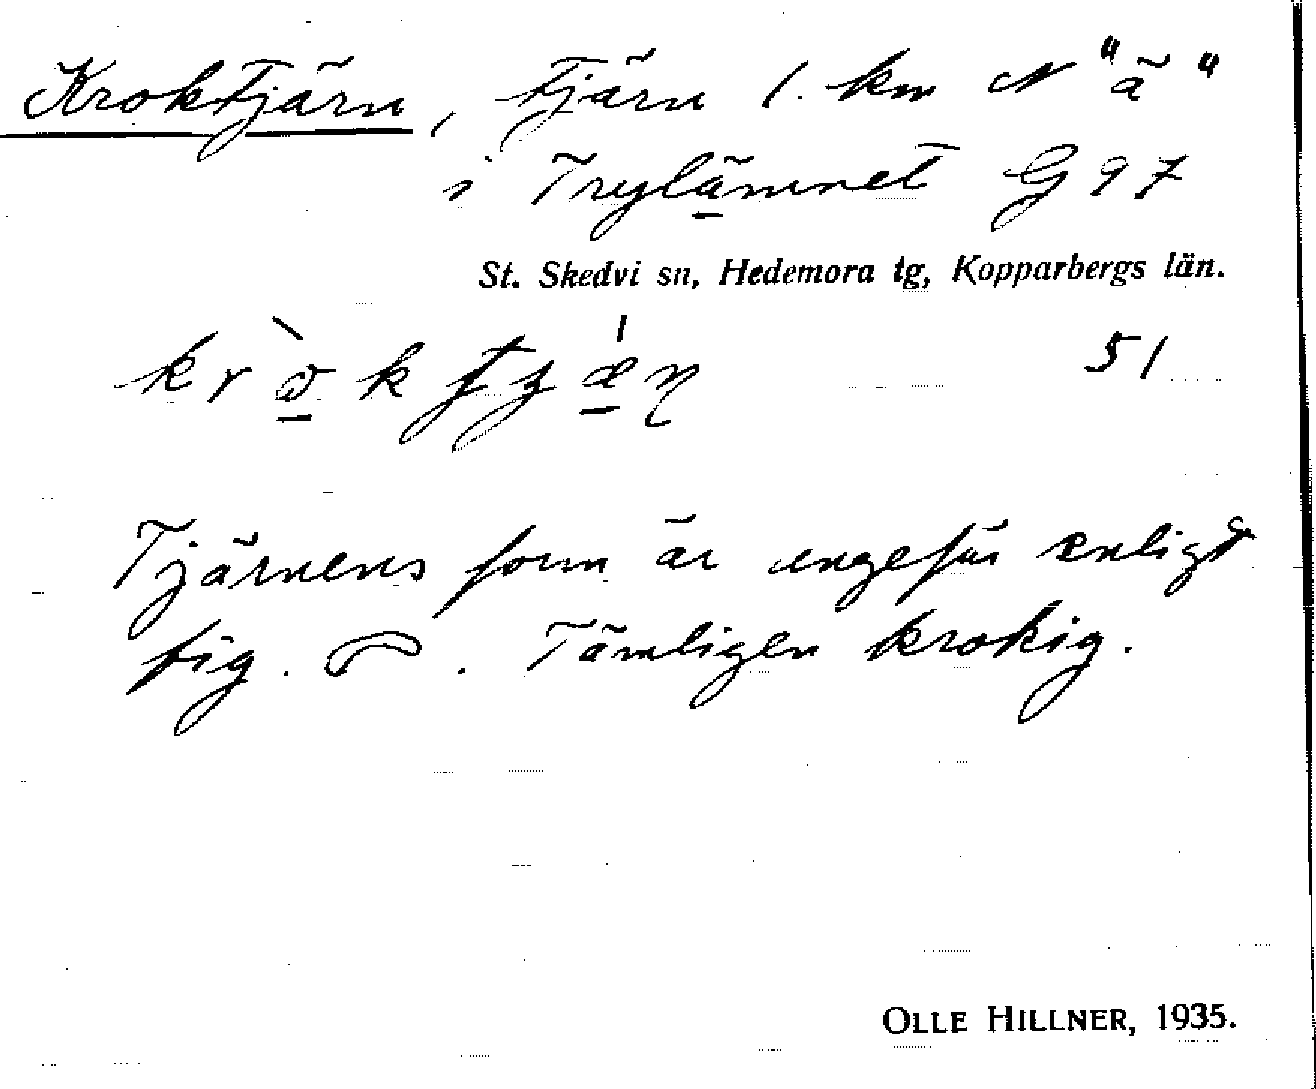 Kroktjärn, tjärn 1. km N "ä"
i Trylämnet G 97
St. Skedvi sn, Hedemora tg, Kopparbergs län.
51
Tjärnens form är ungefär enligt
fig. . Tämligen krokig.
OLLE HILLNER, 1935.